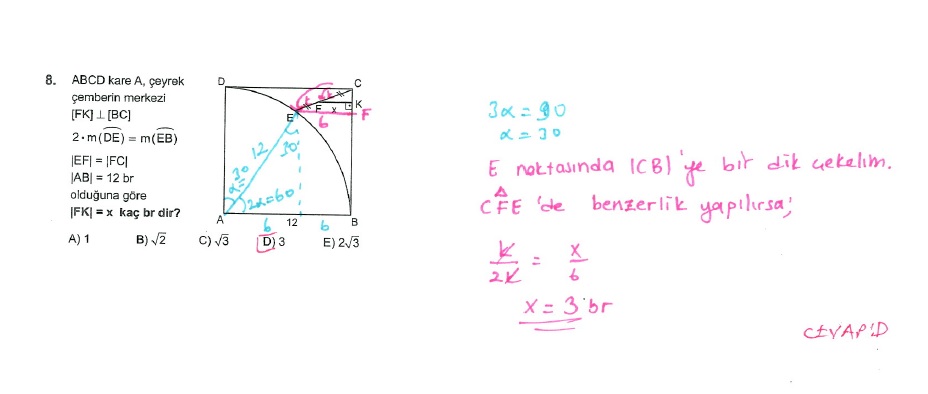 8. ABCD kare A, çeyrek
çemberin merkezi
[FK] ⊥ [BC]
2·m(DE) = m(EB)
|EF| = |FC|
|AB| = 12 br
olduğuna göre
|FK| = x kaç br dir?
A) 1 B) √2 C) √3 D) 3 E) 2√3
D
C
E
F
x
K
F
6
12
30
30
α=
2α=60
A
12
B
6
6
3α = 90
α = 30
E noktasında |CB|'ye bir dik çekelim.
CFE 'de benzerlik yapılırsa;
k/2k = x/6
x = 3 br
CEVAP D